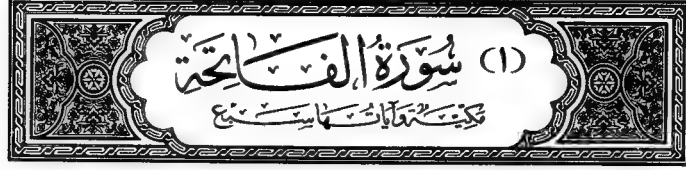 (١) سُورَةُ الفَاتِحَةِ
مَكِيَّة وَآيَاتُهَا سَبْع